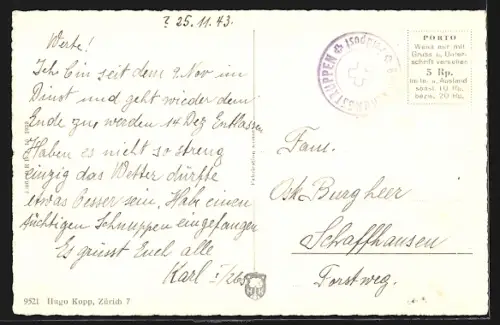 ? 25.11.43.
Werte!
Ich bin seit dem 9. Nov im
Dinst und geht wieder dem
Ende zu, werden 14 Dez Entlassen
Haben es nicht so streng
einzig das Wetter dürfte
etwas besser sein, Hab einen
tüchtigen Schnuppen eingefangen
Es grüsst Euch alle
Karl
9521 Hugo Kopp, Zürich 7
Feldpost
TRUPPEN
PORTO
Wenn nur mit
Gruss u. Unter-
schrift versehen
5 Rp.
sonst 10 Rp.
bezw. 20 Rp.
Fam.
Osk. Burgheer
Schaffhausen
Forstweg.